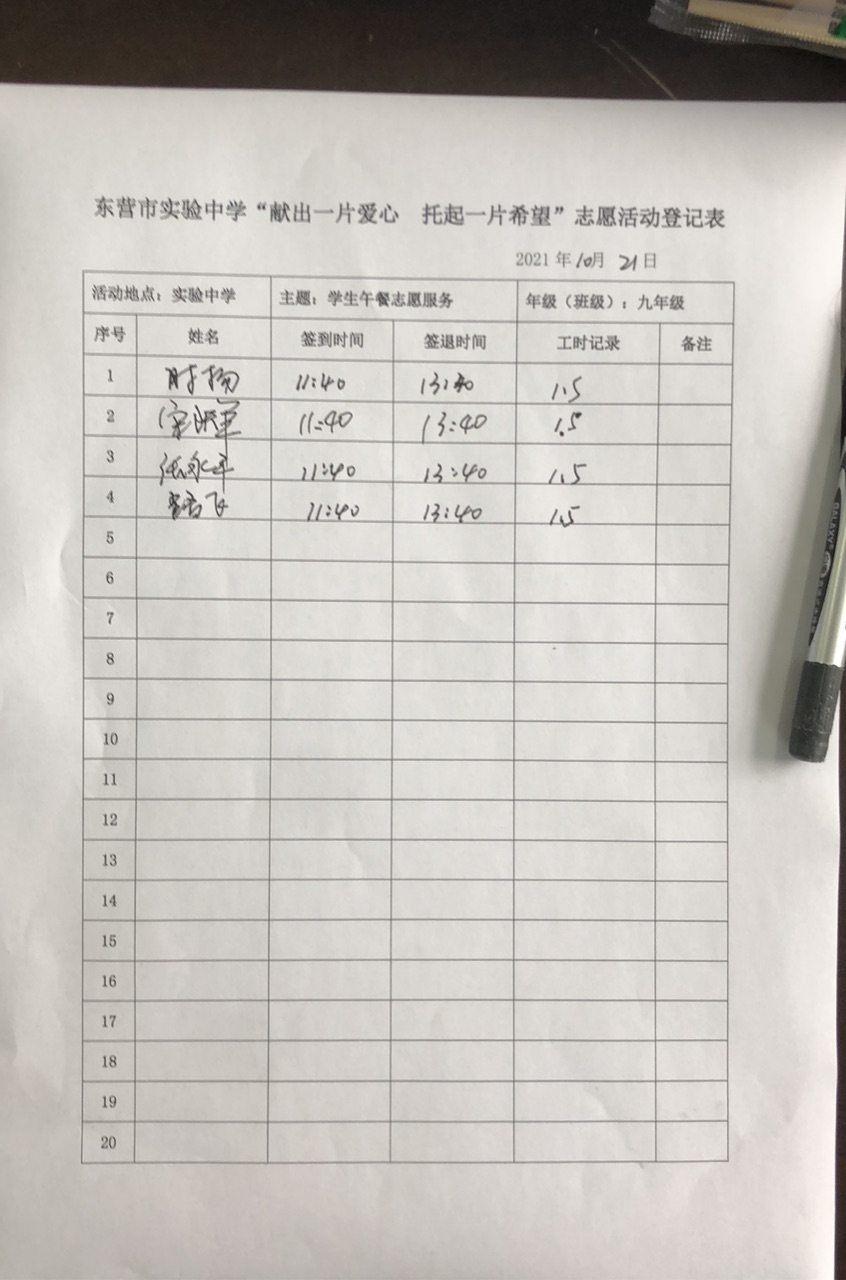 东营市实验中学“献出一片爱心 托起一片希望”志愿活动登记表
2021 年 10月 21日
活动地点：实验中学 主题：学生午餐志愿服务 年级（班级）：九年级
序号 姓名 签到时间 签退时间 工时记录 备注
1 时扬 11:40 13:40 1.5
2 11:40 13:40 1.5
3 张永军 11:40 13:40 1.5
4 11:40 13:40 1.5
5
6
7
8
9
10
11
12
13
14
15
16
17
18
19
20
GALAXY